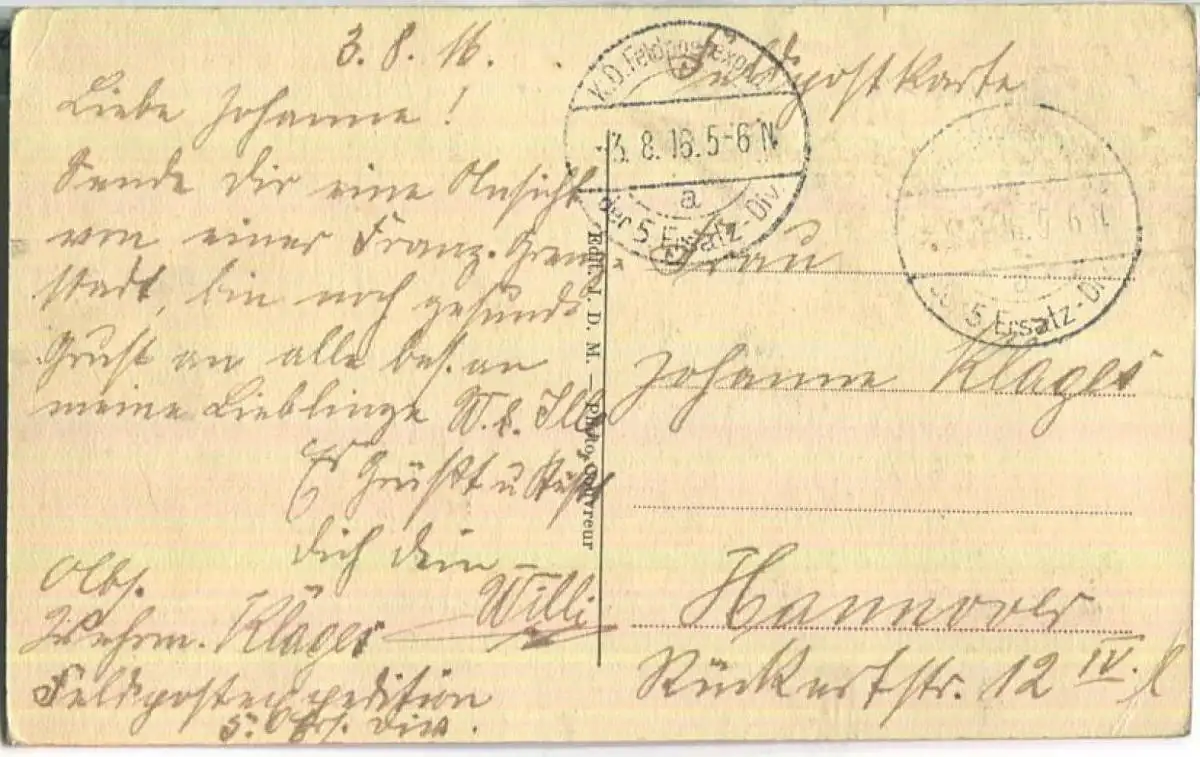 3. 8. 16.
Liebe Johanne!
Sende dir eine Ansicht
von einer Franz. Grenz-
stadt, bin noch gesund
Grust an alle bes. an
meine Lieblinge W. u. Ilse
Es Grüßt u Küßt
dich dein –
Willi
Abs.
Wehrm. Klages
Feldpostexpedition
5. Ers. Div.
Edit. J. D. M. — Photo, Couvreur
Feldpostkarte
K.D. Feldpostexped.
3. 8. 16. 5-6 N
a
der 5 Ersatz-Div.
5-6 N
der 5 Ersatz-Div.
Frau
Johanne Klages
Hannover
Rückertstr. 12 IV. l